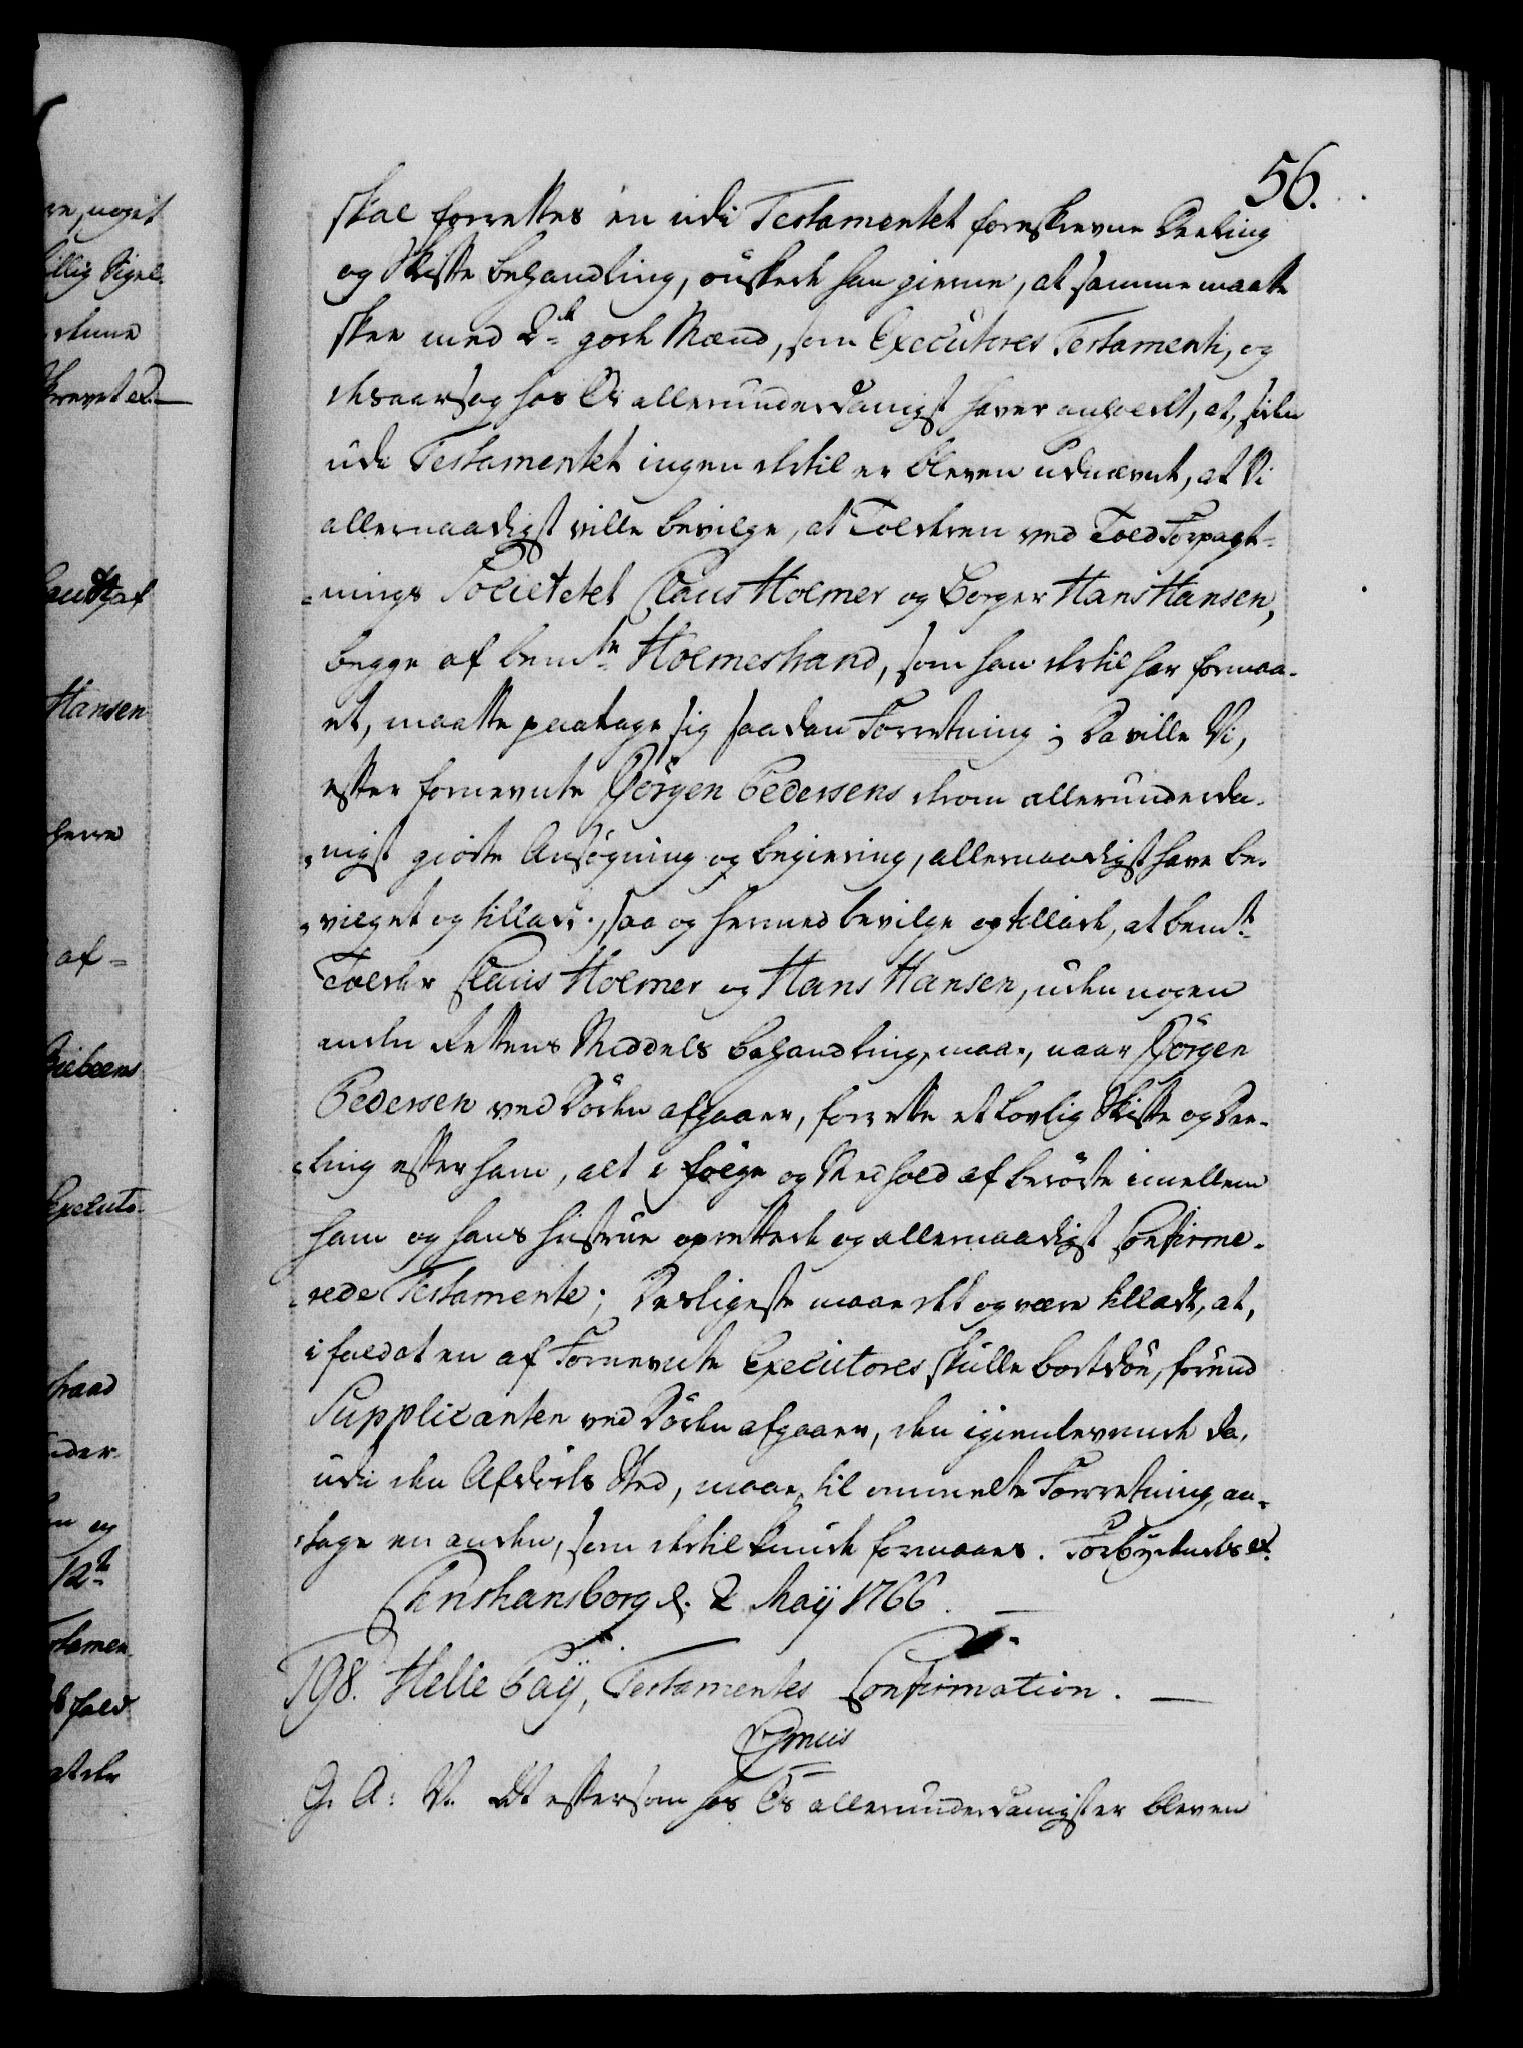 56.
skal forrettes en udi Testamentet foreskrevne Deeling
og Skifte behandling, ønskede han gierne, at samme maatte
skee med 2de gode Mænd, som Executores Testamenti, og
desaarsag hos Os allerunderdanigst haver anholdt, at, siden
udi Testamentet ingen dertil er bleven udnævnt, at Vi
allernaadigst ville bevilge, at Tolderen ved Told Forpagt-
nings Societetet Claus Holmer og Borger Hans Hansen,
begge af bemte Holmestrand, som han dertil har formaa-
et, maatte paatage sig saadan Forretning; Da ville Vi,
efter fornevnte Jørgen Pedersens derom allerunderda-
nigst giorte Ansøgning og begiering, allernaadigst have be-
vilget og tilladt, saa og hermed bevilge og tillade, at bemte
Tolder Claus Holmer og Hans Hansen, uden nogen
anden Rettens Middels behandling, maae, naar Jørgen
Pedersen ved Døden afgaaer, forrette et lovlig Skifte og Dee-
ling efter ham, alt i følge og Medhold af berørte imellem
ham og hans hustrue oprettede og allernaadigst Confirme-
rede Testamente; Desligeste maae det og være tilladt, at,
ifald at en af Fornevnte Executores skulle bortdøe, førend
Supplicanten ved Døden afgaaer, den igienlevende da,
udi den Afdødes Sted, maae til ommelte Forretning, an-
tage en anden, som dertil kunde formaaes. Forbydendes etc.
Christiansborg d. 2 Maÿ 1766.
198. Helle Paÿ, Testamentes Confirmation.
G. A: V. At eftersom hos Os allerunderdanigst er bleven